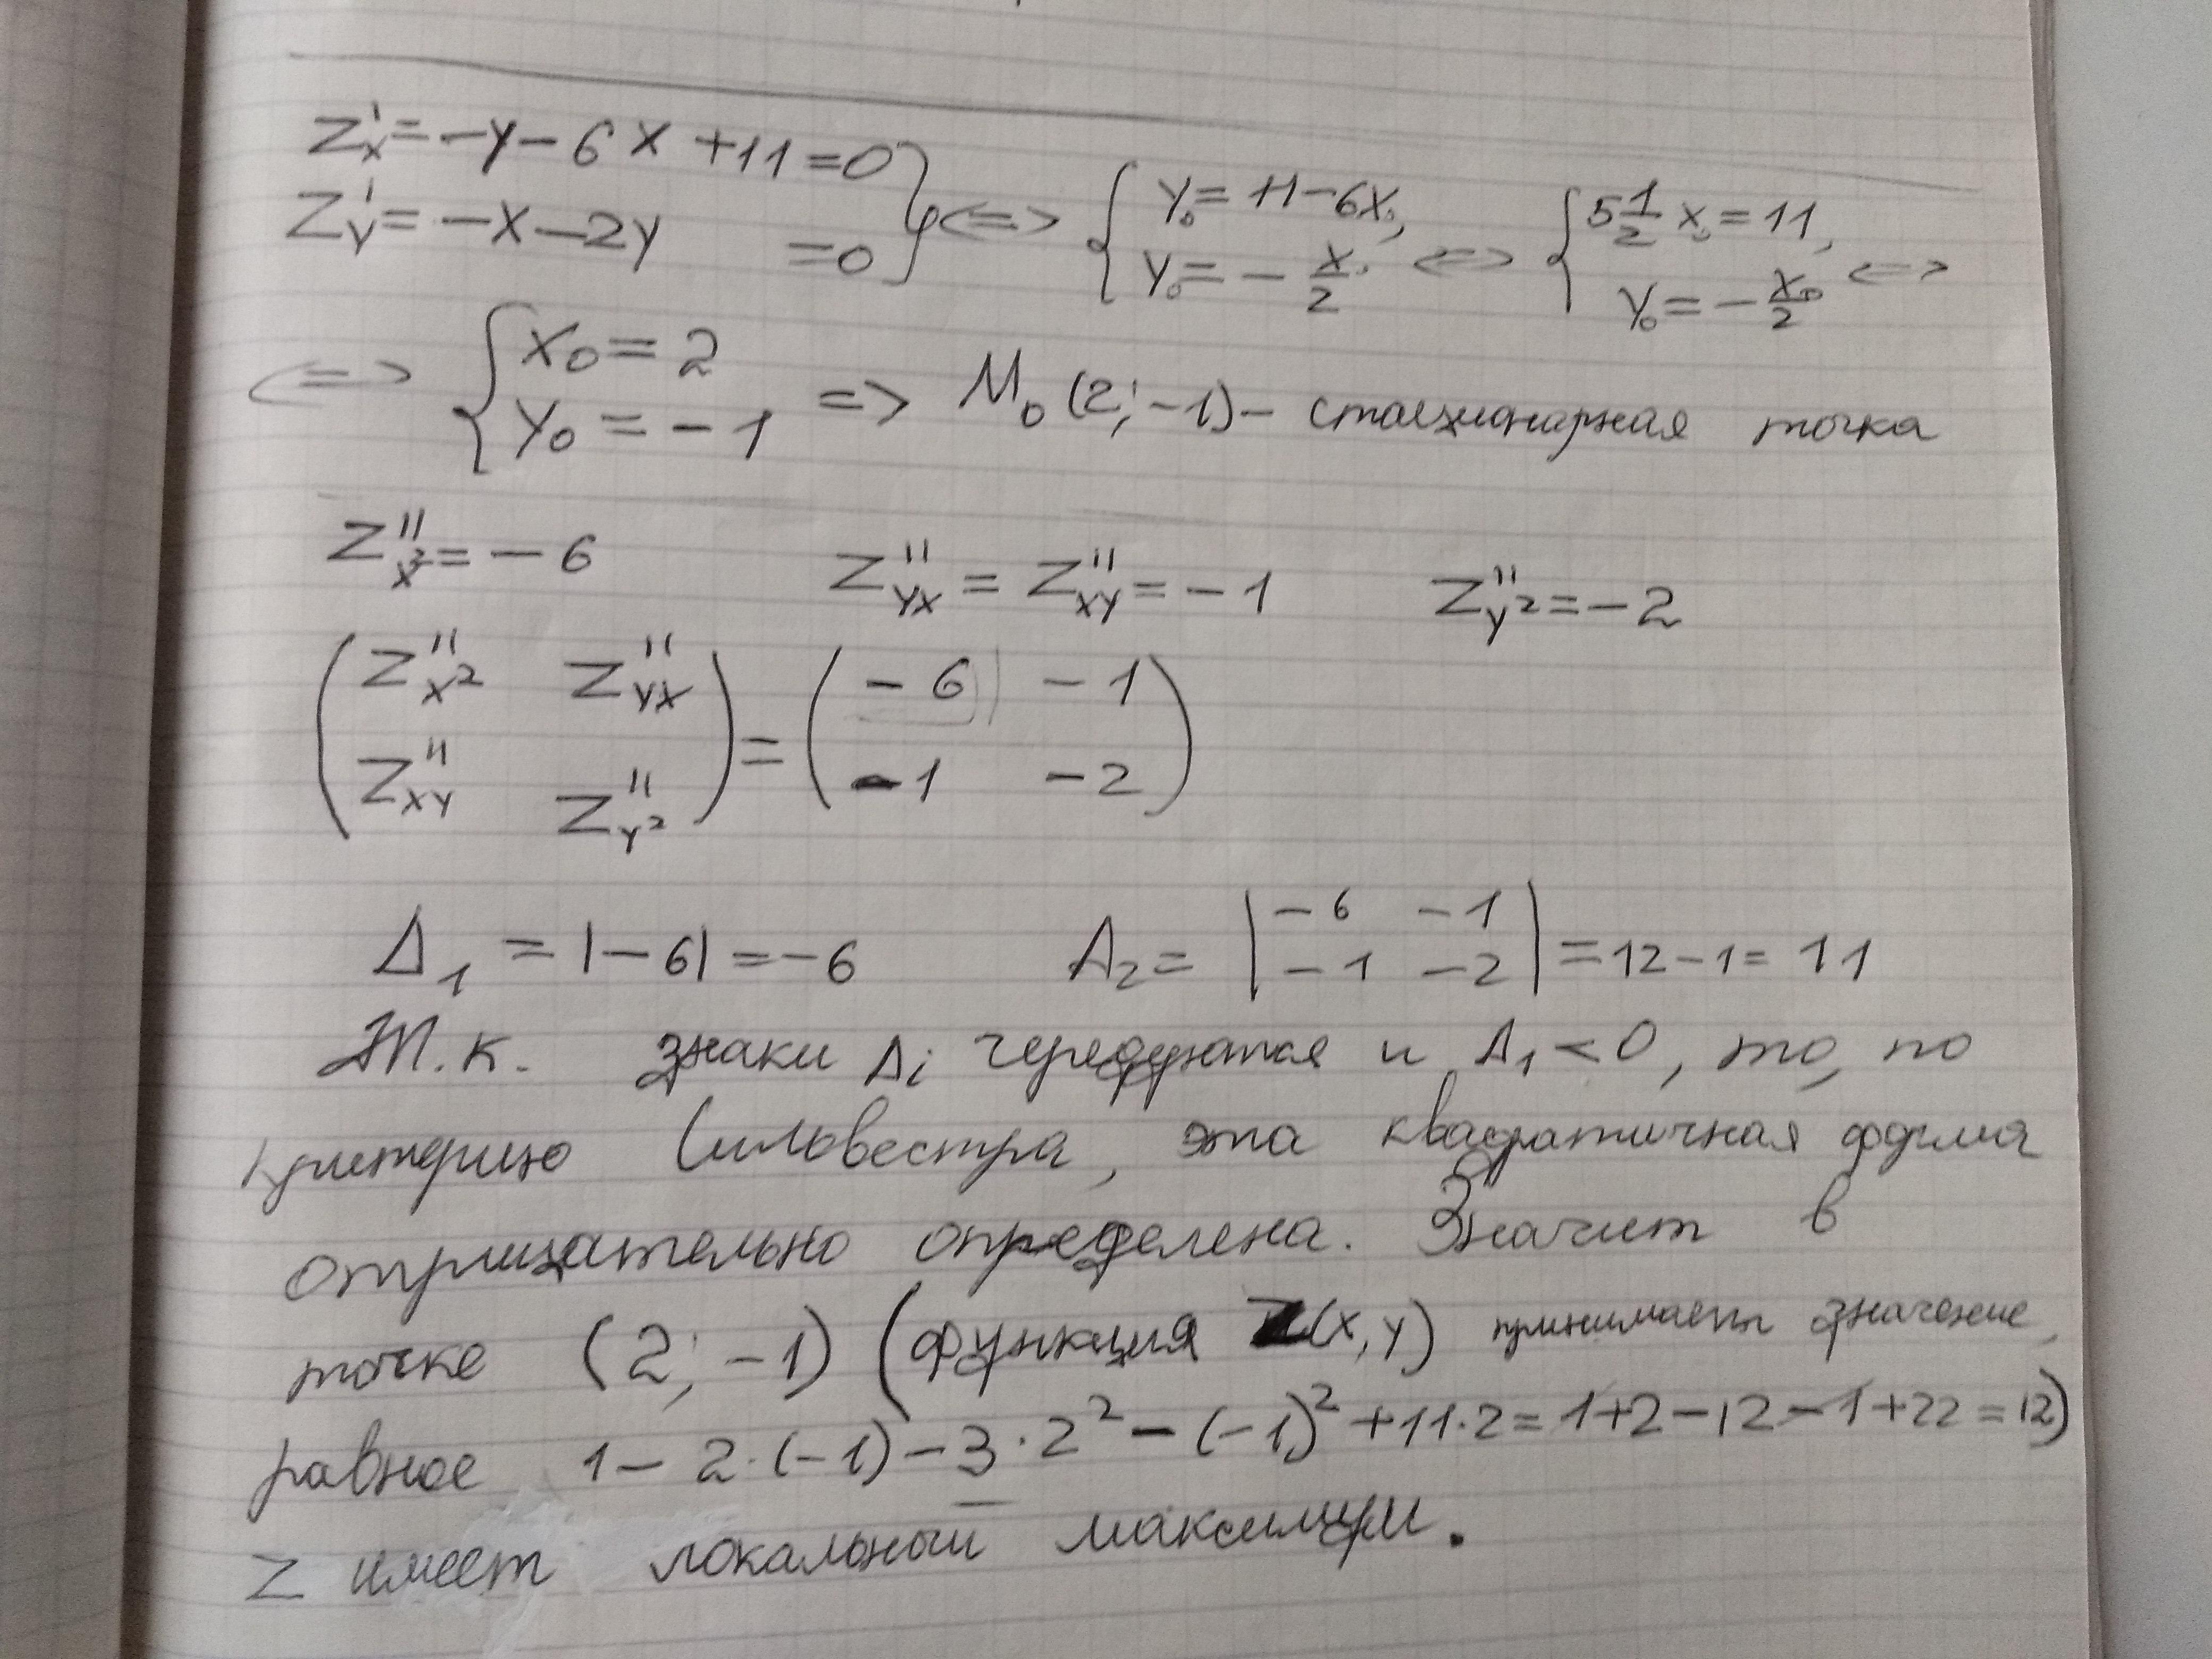 Z'x = -y - 6x + 11 = 0
Z'y = -x - 2y = 0 } <=> { y₀ = 11 - 6x₀, y₀ = - x₀/2 <=> { 5 1/2 x₀ = 11, y₀ = - x₀/2 <=>
<=> { x₀ = 2 y₀ = -1 => M₀ (2; -1) - стационарная точка
Z''x² = -6 Z''yx = Z''xy = -1 Z''y² = -2
( Z''x² Z''yx ) = ( -6 -1 )
( Z''xy Z''y² ) ( -1 -2 )
Δ₁ = |-6| = -6 Δ₂ = | -6 -1 | = 12 - 1 = 11
| -1 -2 |
Т.к. знаки Δi чередуются и Δ₁ < 0, то, по
критерию Сильвестра, эта квадратичная форма
отрицательно определена. Значит в
точке (2; -1) (функция Z(x, y) принимает значение,
равное 1 - 2·(-1) - 3·2² - (-1)² + 11·2 = 1+2-12-1+22 = 12)
Z имеет локальный максимум.